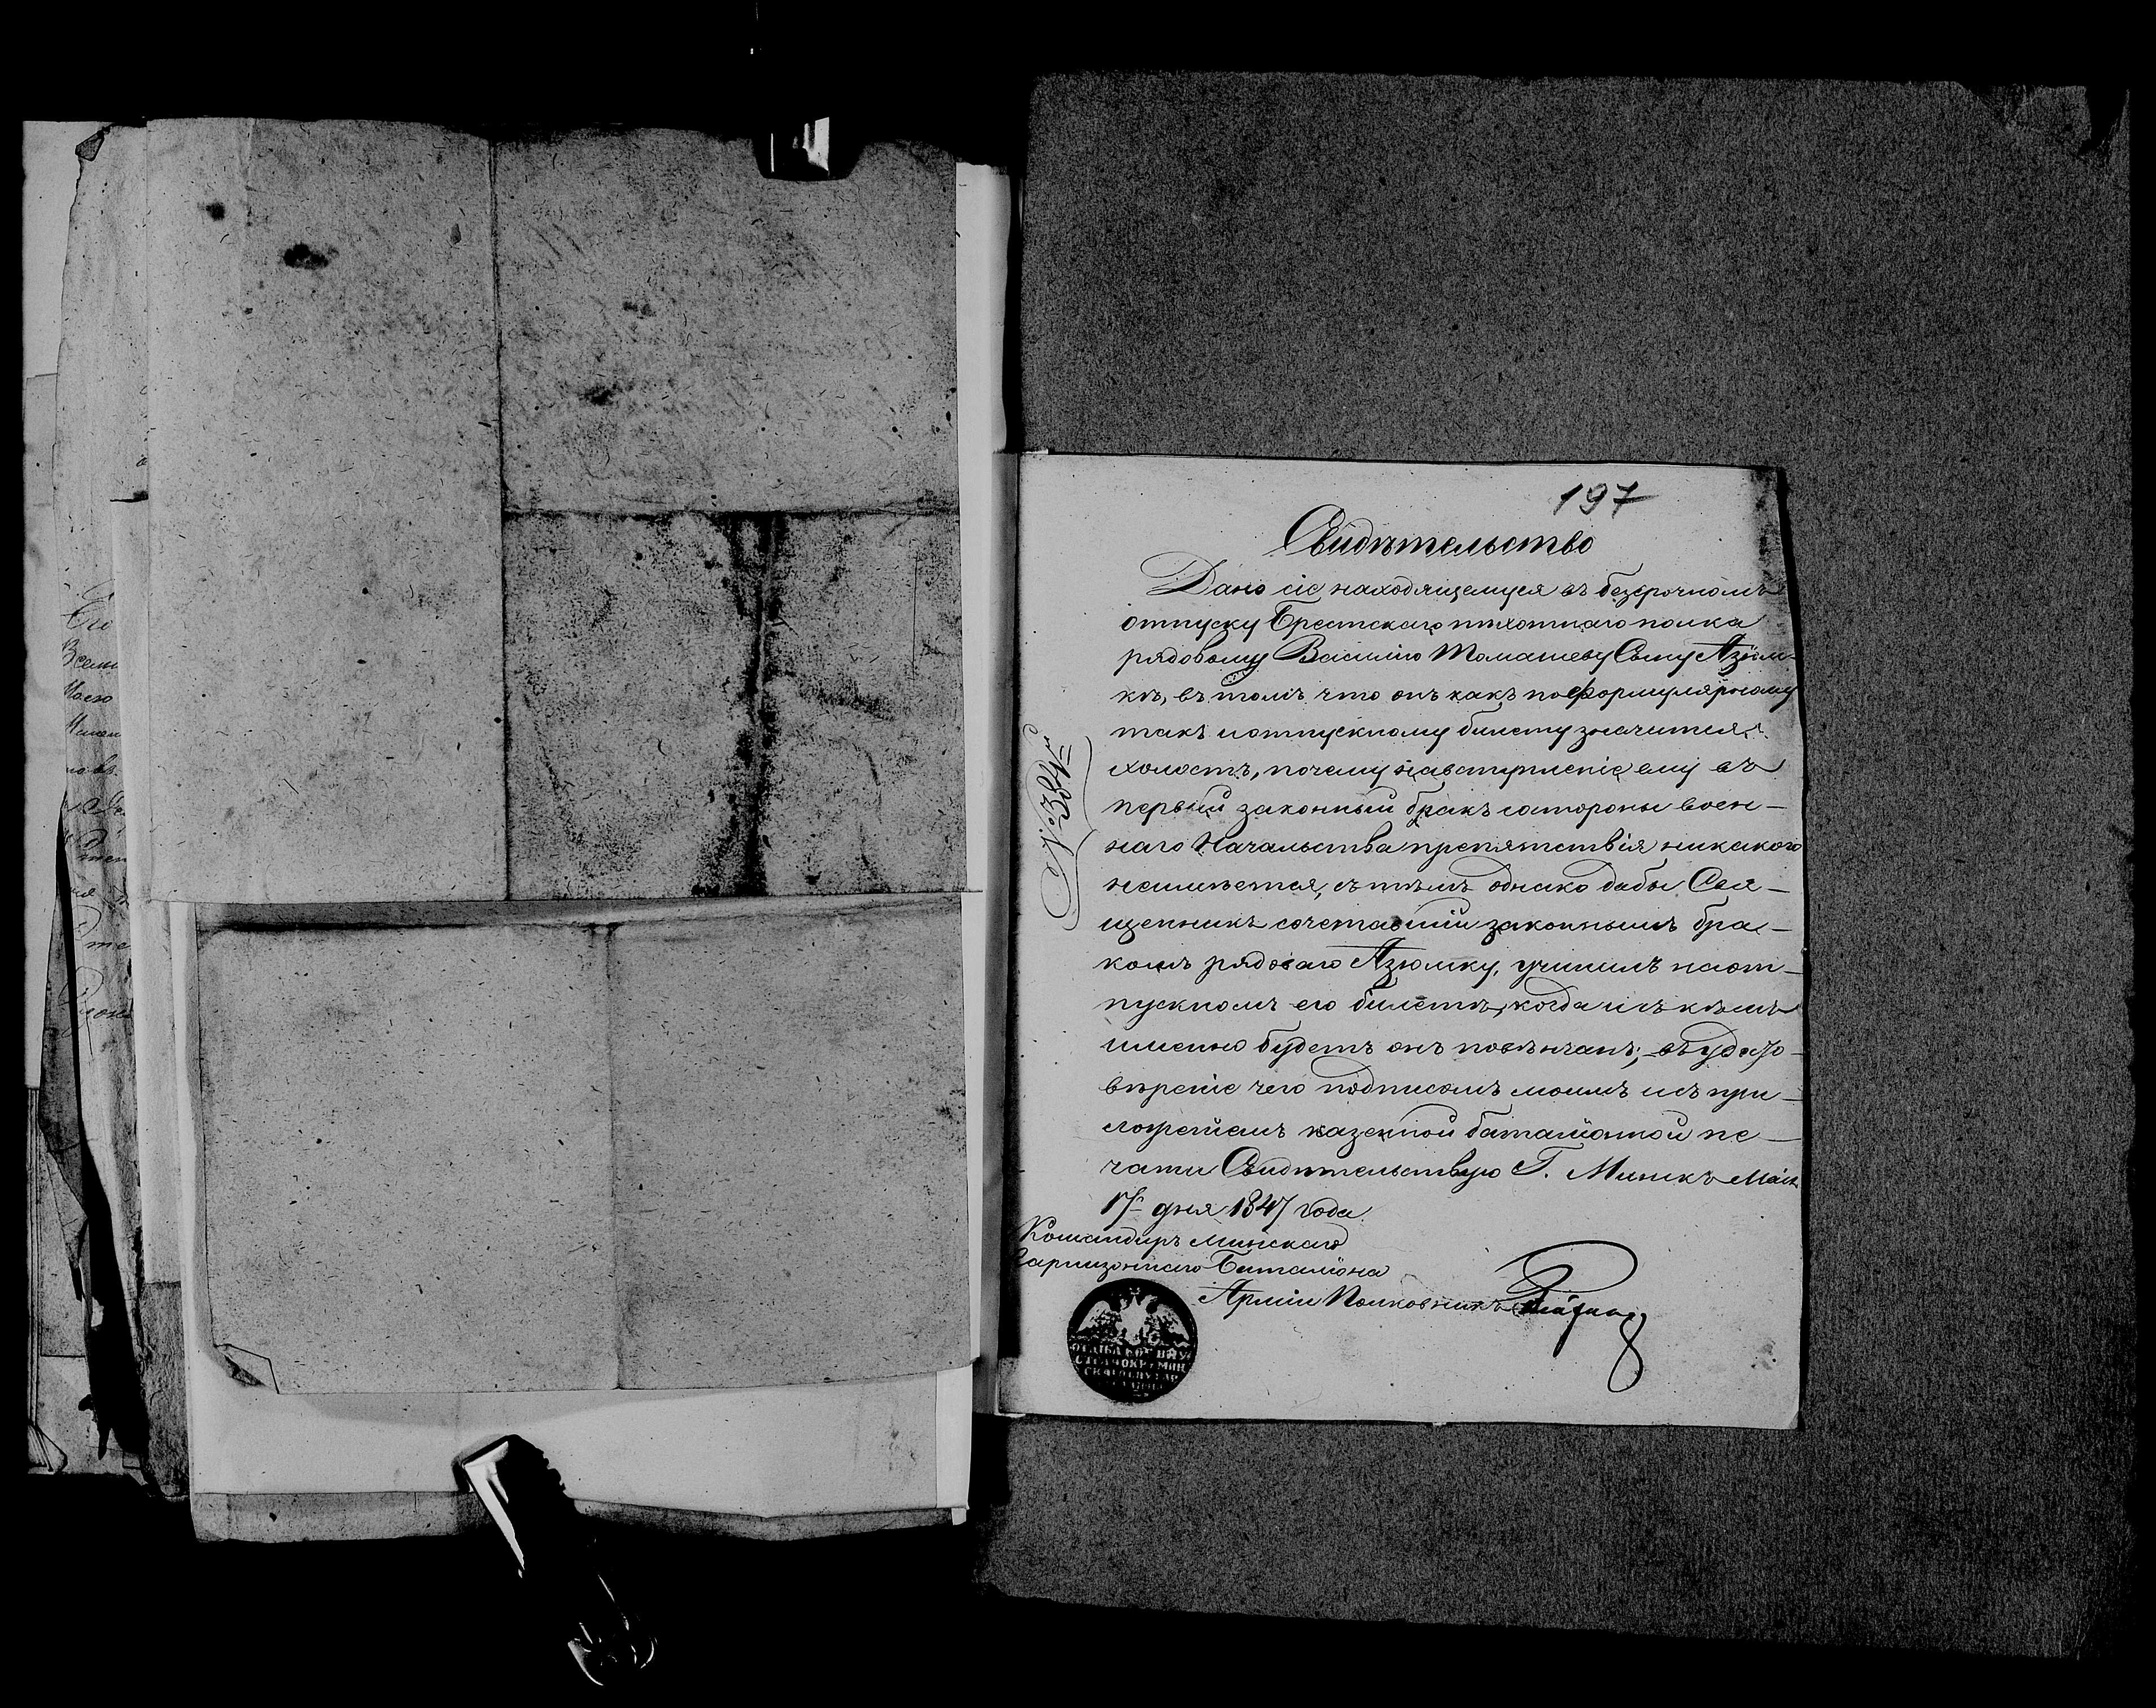 197
Свидѣтельство
Дано сіе находящемуся въ безсрочномъ
отпуску Брестскаго пѣхотнаго полка
рядовому Василию Томашеву Сыну Азюм-
кѣ, въ томъ что онъ какъ по формулярному
такъ и отпускному билету значится
холостъ, почему на вступленіе ему въ
первый законный бракъ состороны воен-
наго Начальства препятствія никакого
неимѣется, съ тѣмъ однако дабы Свя-
щенникъ сочетавшій законнымъ бра-
комъ рядоваго Азюмку, учинилъ на от-
пускномъ его билетѣ, когда и съ кѣмъ
именно будетъ онъ повѣнчанъ; въ удосто-
вѣреніе чего подписомъ моимъ и съ при-
ложеніемъ казенной баталіонной пе-
чати Свидѣтельствую Г. Минскъ Маія
17 дня 1847 года.
Командиръ Минскаго
Гарнизоннаго Баталіона
Арміи Полковникъ
Его